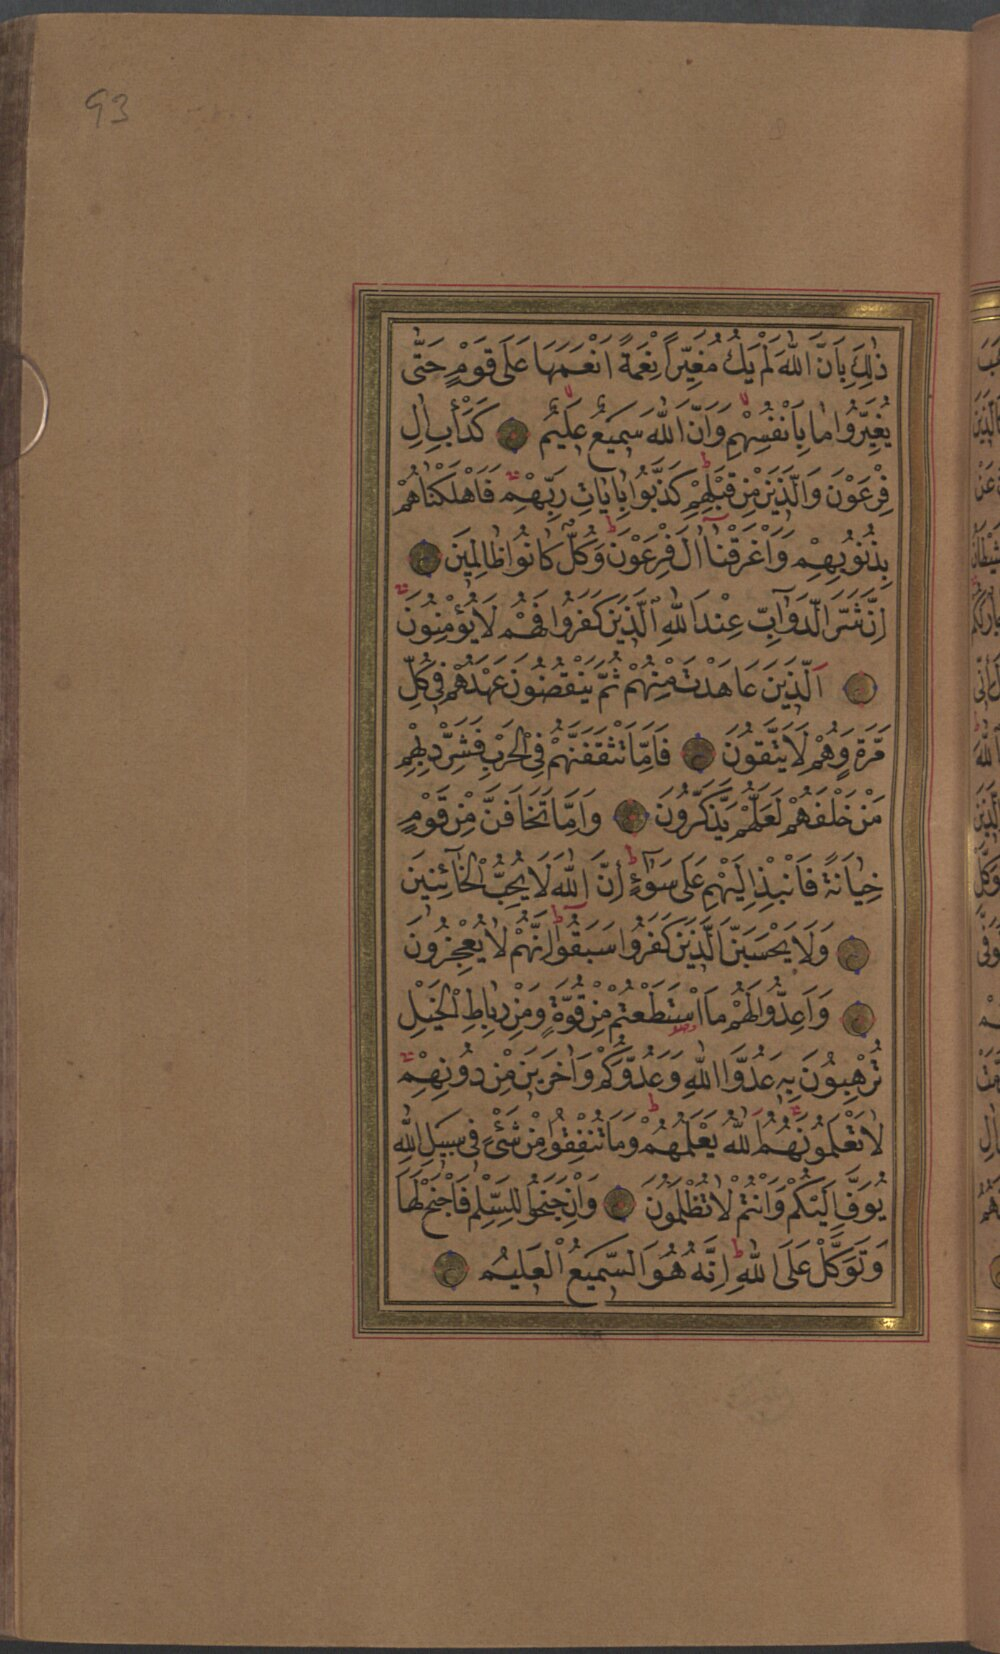 93
ذٰلِكَ بِاَنَّ اللّٰهَ لَمْ يَكُ مُغَيِّرًا نِعْمَةً اَنْعَمَهَا عَلٰى قَوْمٍ حَتّٰى
يُغَيِّرُوا مَا بِاَنْفُسِهِمْ وَاَنَّ اللّٰهَ سَمِيعٌ عَلِيمٌ كَدَأْبِ اٰلِ
فِرْعَوْنَ وَالَّذِينَ مِنْ قَبْلِهِمْ كَذَّبُوا بِاٰيَاتِ رَبِّهِمْ فَاَهْلَكْنَاهُمْ
بِذُنُوبِهِمْ وَاَغْرَقْنَا اٰلَ فِرْعَوْنَ وَكُلٌّ كَانُوا ظَالِمِينَ
اِنَّ شَرَّ الدَّوَآبِّ عِنْدَ اللّٰهِ الَّذِينَ كَفَرُوا فَهُمْ لَا يُؤْمِنُونَ
اَلَّذِينَ عَاهَدْتَ مِنْهُمْ ثُمَّ يَنْقُضُونَ عَهْدَهُمْ فِي كُلِّ
مَرَّةٍ وَهُمْ لَا يَتَّقُونَ فَاِمَّا تَثْقَفَنَّهُمْ فِي الْحَرْبِ فَشَرِّدْ بِهِمْ
مَنْ خَلْفَهُمْ لَعَلَّهُمْ يَذَّكَّرُونَ وَاِمَّا تَخَافَنَّ مِنْ قَوْمٍ
خِيَانَةً فَانْبِذْ اِلَيْهِمْ عَلٰى سَوَآءٍ اِنَّ اللّٰهَ لَا يُحِبُّ الْخَآئِنِينَ
وَلَا يَحْسَبَنَّ الَّذِينَ كَفَرُوا سَبَقُوا اِنَّهُمْ لَا يُعْجِزُونَ
وَاَعِدُّوا لَهُمْ مَا اسْتَطَعْتُمْ مِنْ قُوَّةٍ وَمِنْ رِبَاطِ الْخَيْلِ
تُرْهِبُونَ بِهِ عَدُوَّ اللّٰهِ وَعَدُوَّكُمْ وَاٰخَرِينَ مِنْ دُونِهِمْ
لَا تَعْلَمُونَهُمُ اللّٰهُ يَعْلَمُهُمْ وَمَا تُنْفِقُوا مِنْ شَيْءٍ فِي سَبِيلِ اللّٰهِ
يُوَفَّ اِلَيْكُمْ وَاَنْتُمْ لَا تُظْلَمُونَ وَاِنْ جَنَحُوا لِلسَّلْمِ فَاجْنَحْ لَهَا
وَتَوَكَّلْ عَلَى اللّٰهِ اِنَّهُ هُوَ السَّمِيعُ الْعَلِيمُ